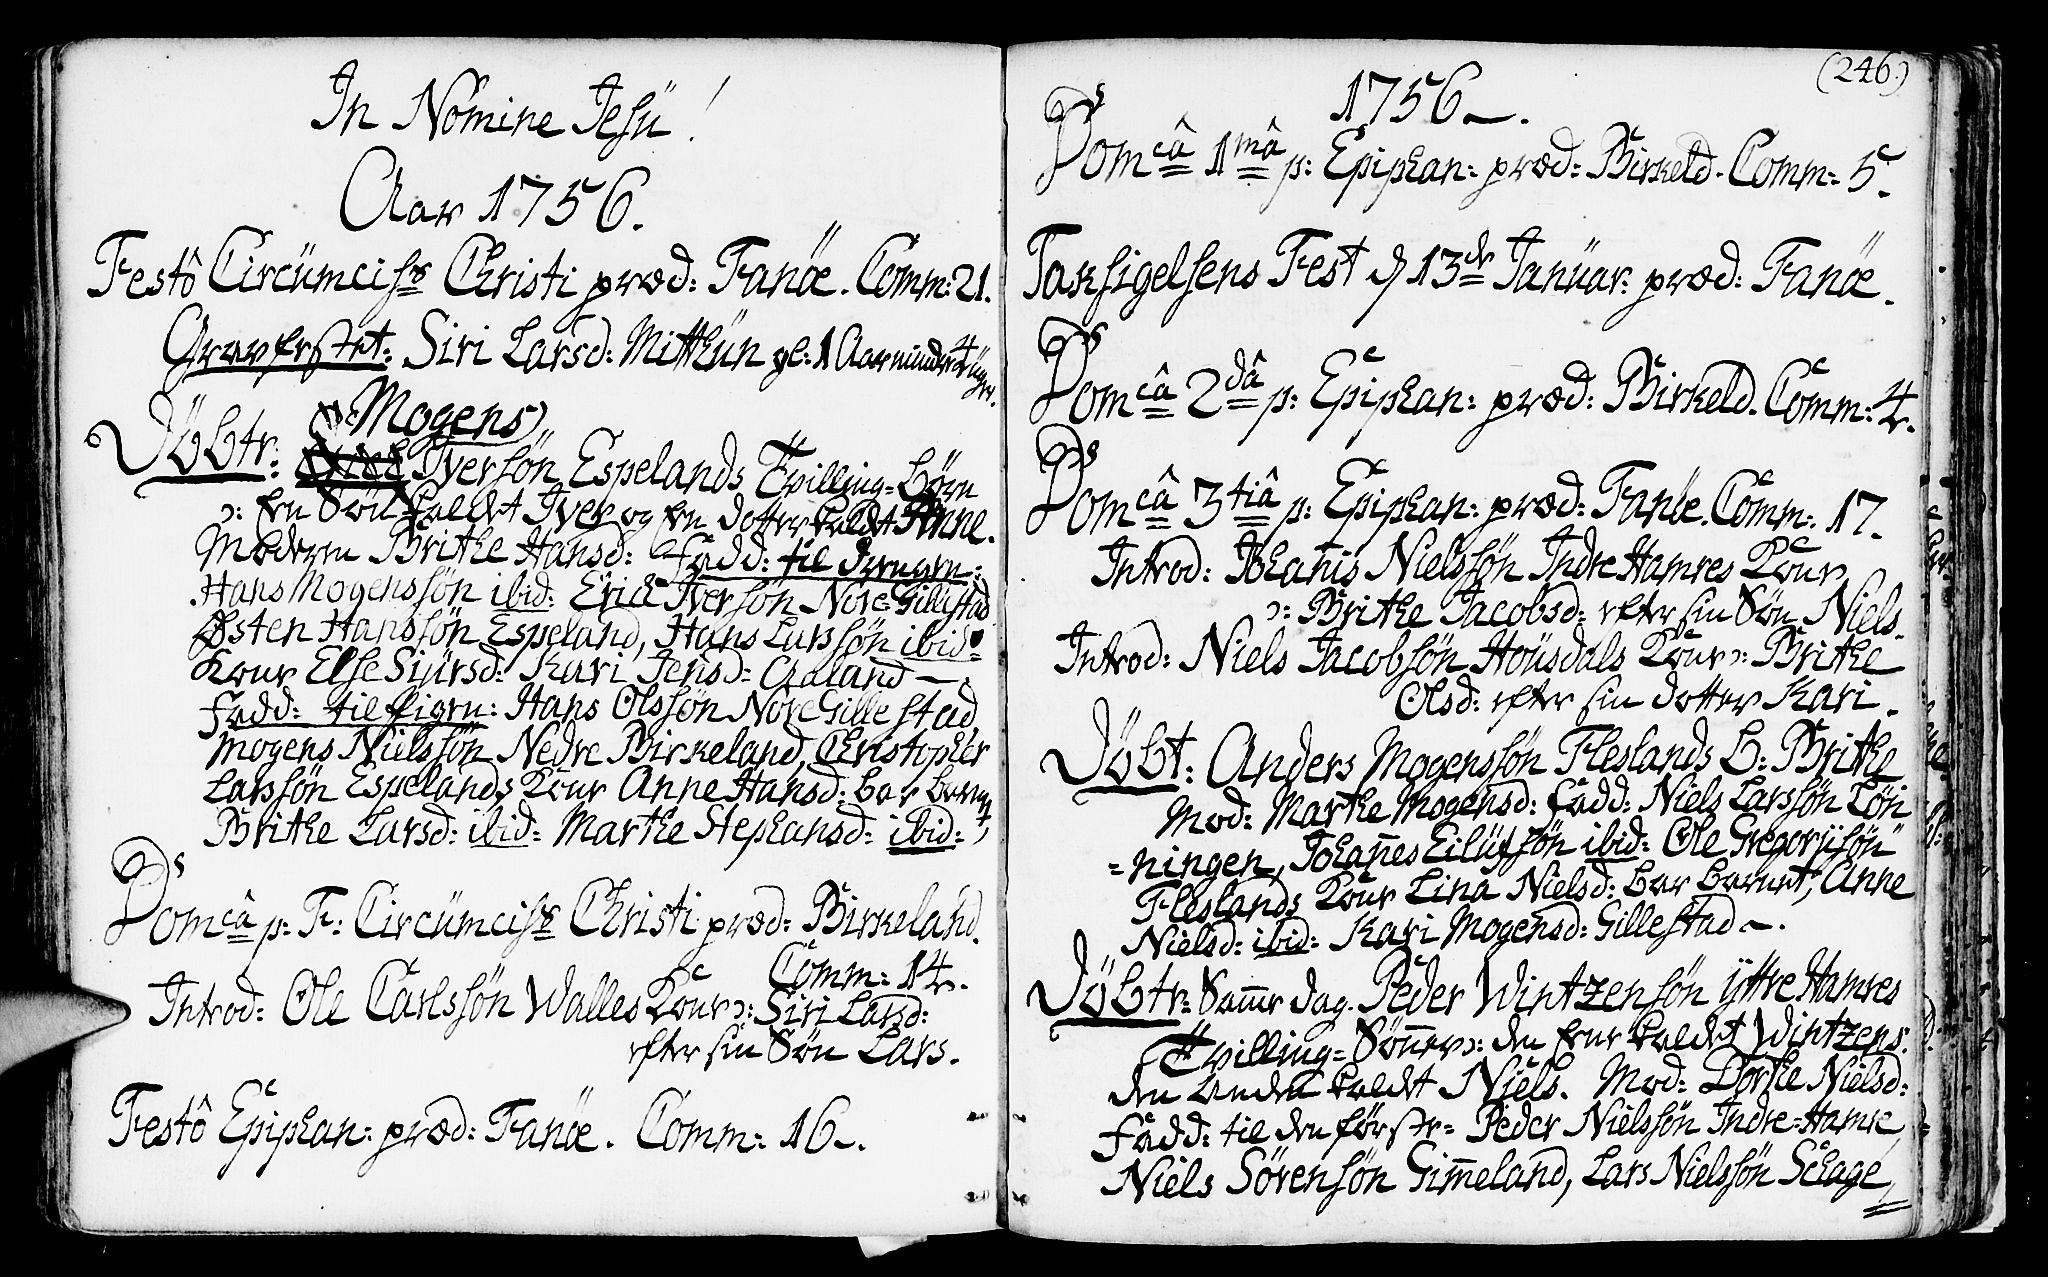 In Nomine Jesu!
Aar 1756.
Festô Circumcis:s Christi præd: Fanöe. Comm: 21.
Gravfestet: Siri Larsd: Mitthun gl: 1 Aar minder 4 uger.
(Mogens)
Döbtr: Iversön Espelands Tvilling-Börn
ↄ: En Sön kaldt Iver og En dotter kaldt Anne.
Moderen Brithe Hansd: Fadd: til drengen:
Hans Mogenssön ibid: Erick Iversön Nore-Gillestad
Østen Hanssön Espeland, Hans Larssön ibid:
Kone Else Sjursd: Kari Jensd: Aaland –
Fadd: til Pigen: Hans Olssön Nore Gillestad
Mogens Nielssön Nedre Birkeland, Christopher
Larssön Espelands Kone Anne Hansd: bar barnet,
Brithe Larsd: ibid: Marthe Stephansd: ibid:
Domcâ p: F: Circumcis:s Christi præd: Birkeland.
Comm: 14.
Introd: Ole Carlssön Walles Kone ↄ: Siri Larsd:
efter sin Sön Lars.
Festô Epiphan: præd: Fanöe. Comm: 16.
(246.)
1756.
Domcâ 1mâ p: Epiphan: præd: Birkeld. Comm: 5.
Taksigelsens Fest d 13de Januar: præd: Fanöe.
Domcâ 2dâ p: Epiphan: præd: Birkeld. Comm: 4.
Domcâ 3tiâ p: Epiphan: præd: Fanöe. Comm: 17.
Introd: Johanis Nielssön Indre Hamres Kone
ↄ: Brithe Jacobsd: efter sin Sön Niels.
Introd: Niels Jacobsön Housdals Kone ↄ: Brithe
Olsd: efter sin dotter Kari.
Döbt: Anders Mogenssön Fleslands b: Brithe
Mod: Marthe Mogensd: Fadd: Niels Larssön Löni
-ningen, Johanes Eilufsön ibid: Ole Gregorijsön
Fleslands Kone Lina Nielsd: bar barnet, Anne
Nielsd: ibid: Kari Mogensd: Gillestad –.
Döbtr: Samme dag. Peder Wintzensön ÿttre Hamres
Tvilling-Sönner ↄ: den Ene kaldt Wintzens.
den Anden kaldt Niels. Mod: Dorthe Nielsd:
Fadd: til den förster Peder Nielssön Indre-Hamre
Niels Sörensön Gimeland, Lars Nielssön Schage,